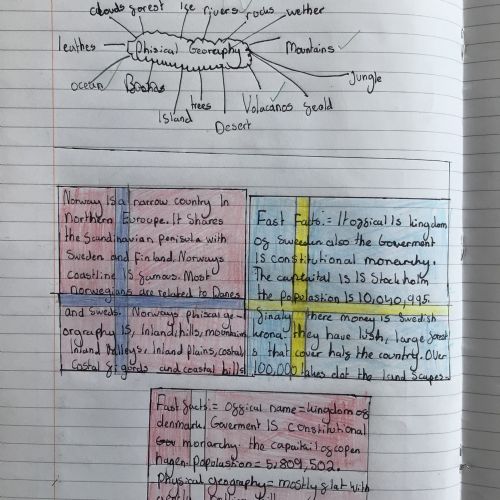 clouds forest Ice rivers rocks wether
leathes
Phisical Georaphy
Mountains
Jungle
ocean
Bushes
Island
trees
Desert
Volacanos
geold
Norway Is a narrow country In
northern Euroupe. It Shares
the Scandinavian penisula with
Sweden and Finland. Norways
Coastline is famous. Most
norwegians are related to Danes
and Sweds. Norways phiscal ge-
orgraphy is, Inland, hills, mountains
Inland Valleys, Inland plains, costal
Costal fjords and coastal hills
Fast Facts. = It offical Is kingdom
of Sweeden also the Goverment
Is constitutional monarchy.
The capeital Is IS Stockholm
the populastion IS 10,040,995
finaly there money is Swedish
krona. they have lush, large forest
s that cover half the country. Over
100,000 lakes dot the land scapes.
Fast facts: = Offical name = kingdom of
denmark. Goverment IS constitutional
monarchy. the capaital of copen
hagen. Populastion = 5,809,502.
Physical geography = mostly flat with